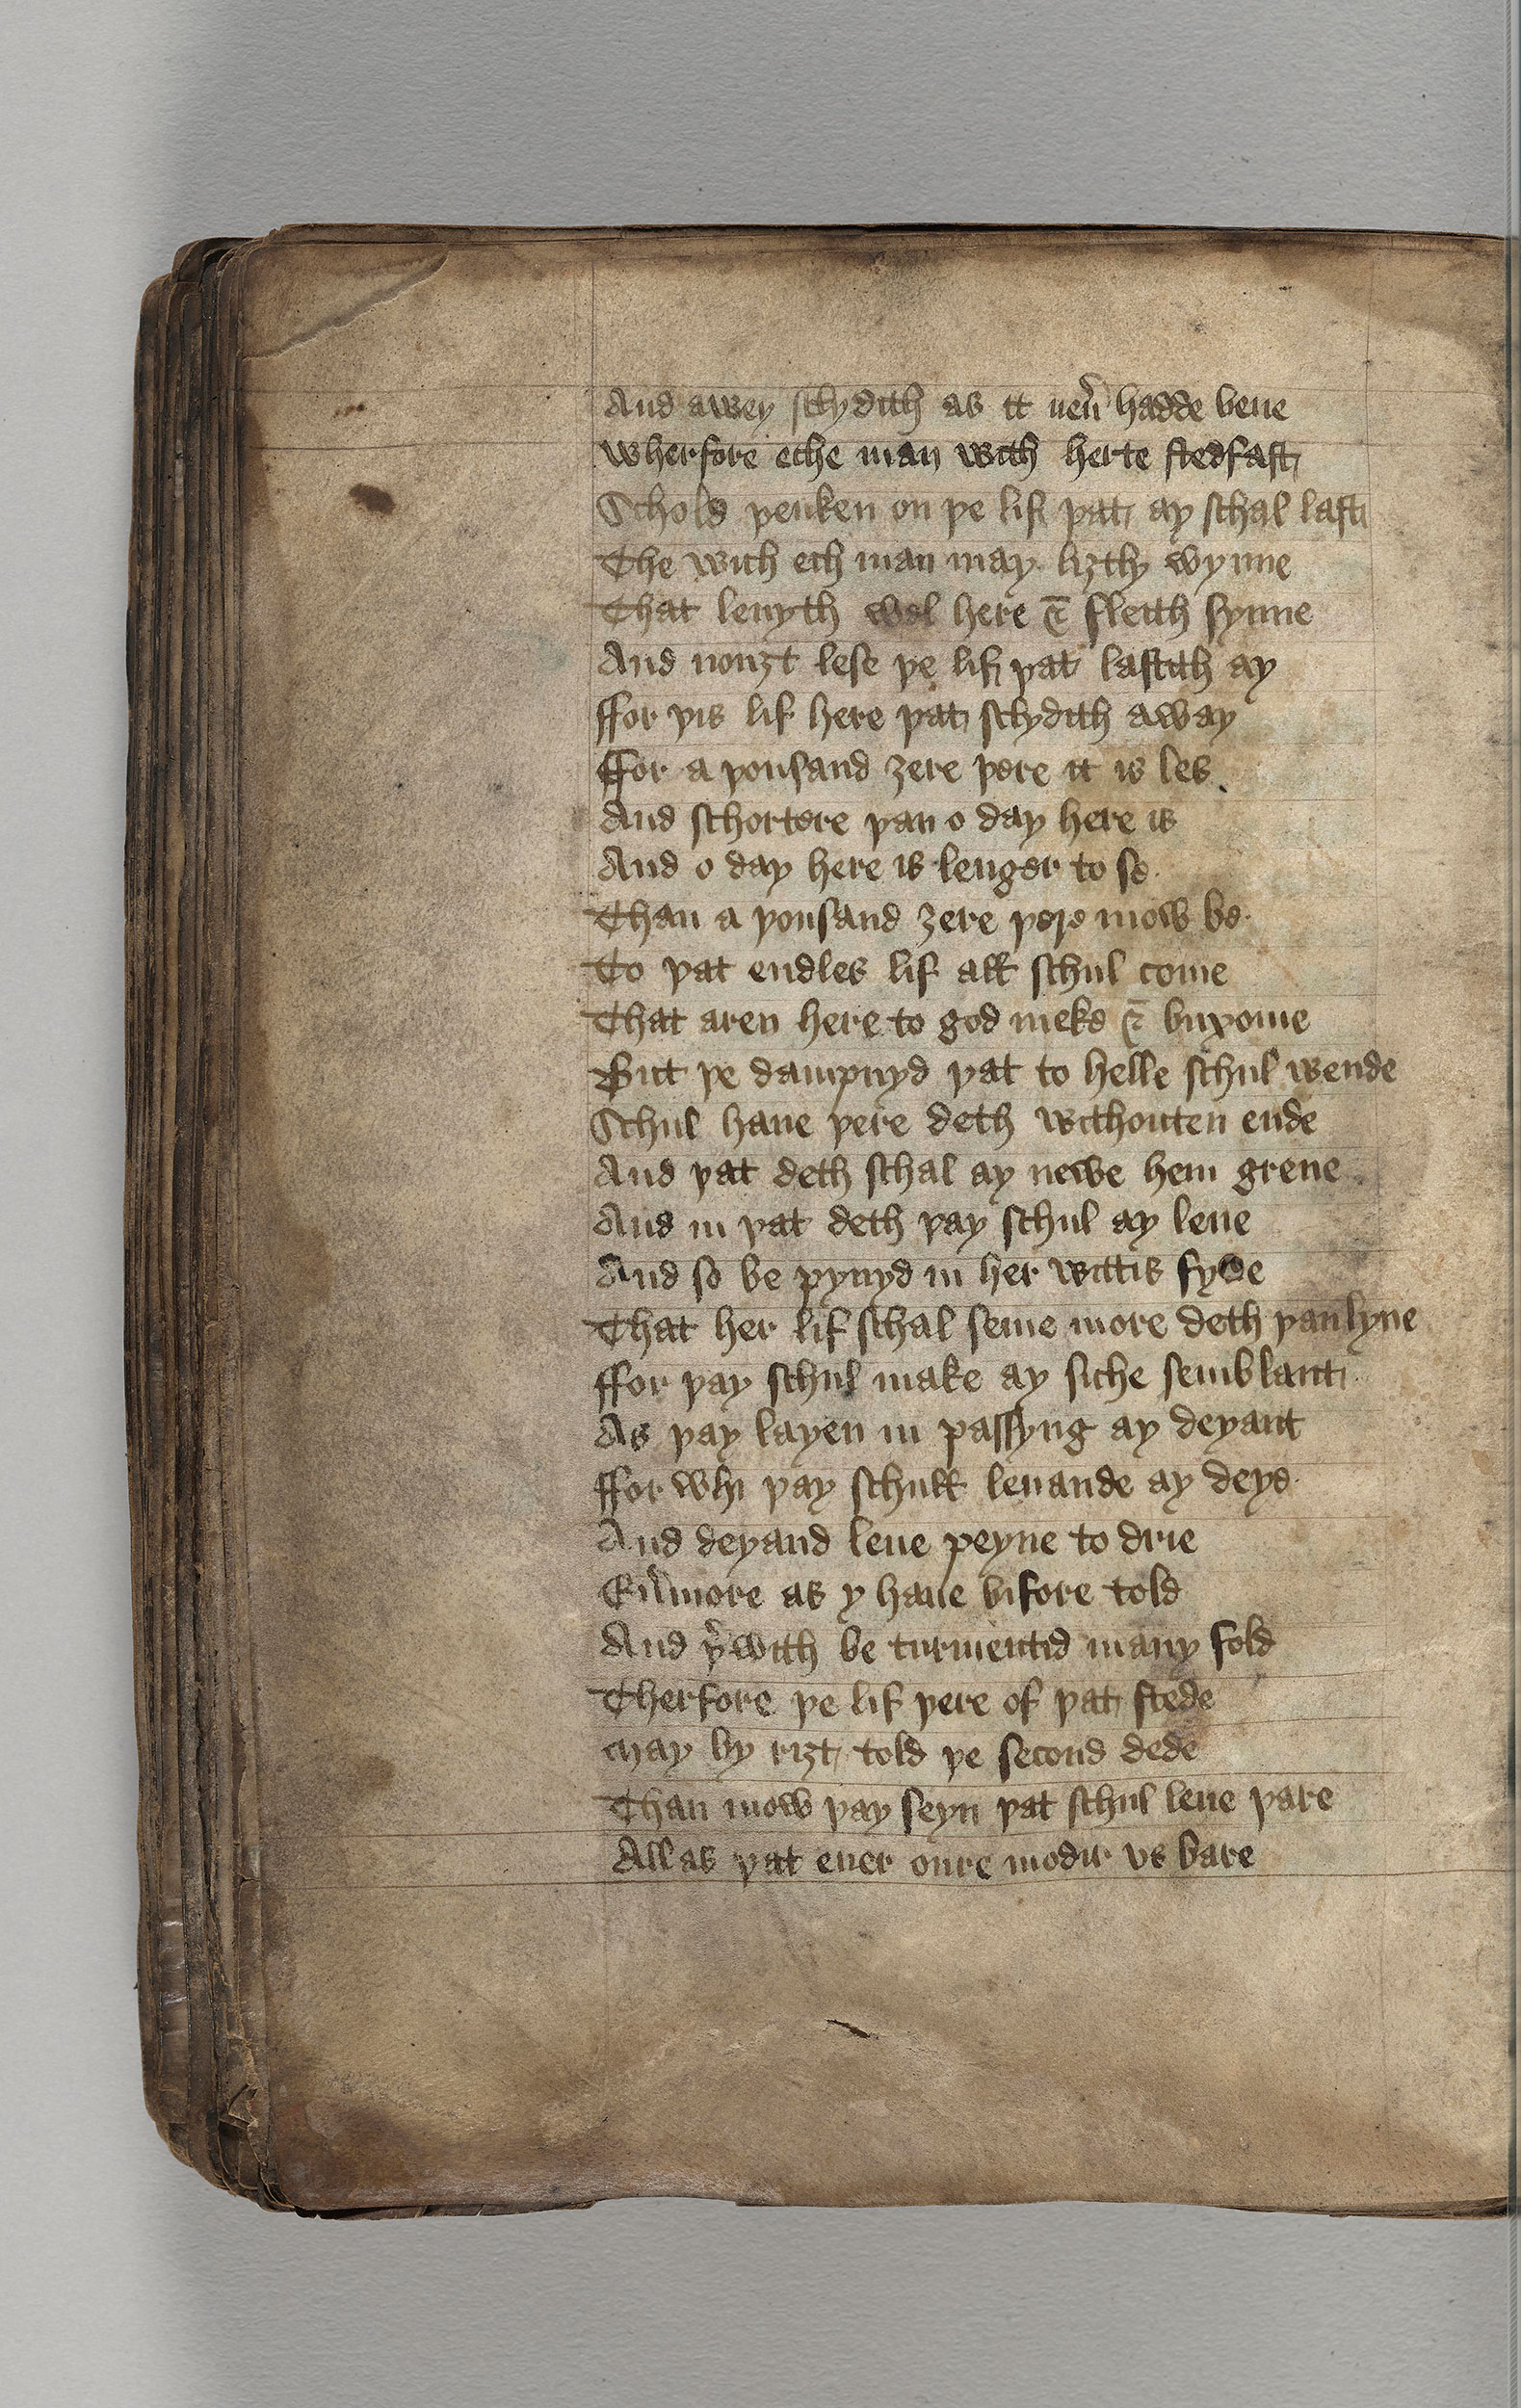 And awey schydith as it neu̾ hadde bene
wherfore eche man with herte stedfast
Schold þenken on þe lif þat ay schal last
The wich ech man may liȝtly wynne
That leuyth wel here & fleith synne
And nouȝt lese þe lif þat lastith ay
ffor þis lif here þat schydith away
ffor a þousand ȝere þere it is les
And schortere þan o day here is
And o day here is lenger to se
Than a þousand ȝere þere mow be
To þat endles lif all schul come
That aren here to god meke & buxome
But þe dampnyd þat to helle schul wende
Schul haue þere deth withouten ende
And þat deth schal ay newe hem greue
And in þat deth þay schul ay leue
And so be pynyd in her wittis fyve
That her lif schal seme more deth þan lyue
ffor þay schul make ay siche semblant
As þay layen in passyng ay deyant
ffor whi þay schull leuande ay deye
And deyand leue peyne to drie
Eu̾more as y haue bifore told
And þ̾with be turmentid many fold
Therfore þe lif þere of þat stede
May by riȝt told þe second dede
Than mow þay seyn þat schul leue þare
Allas þat euer oure modir vs bare